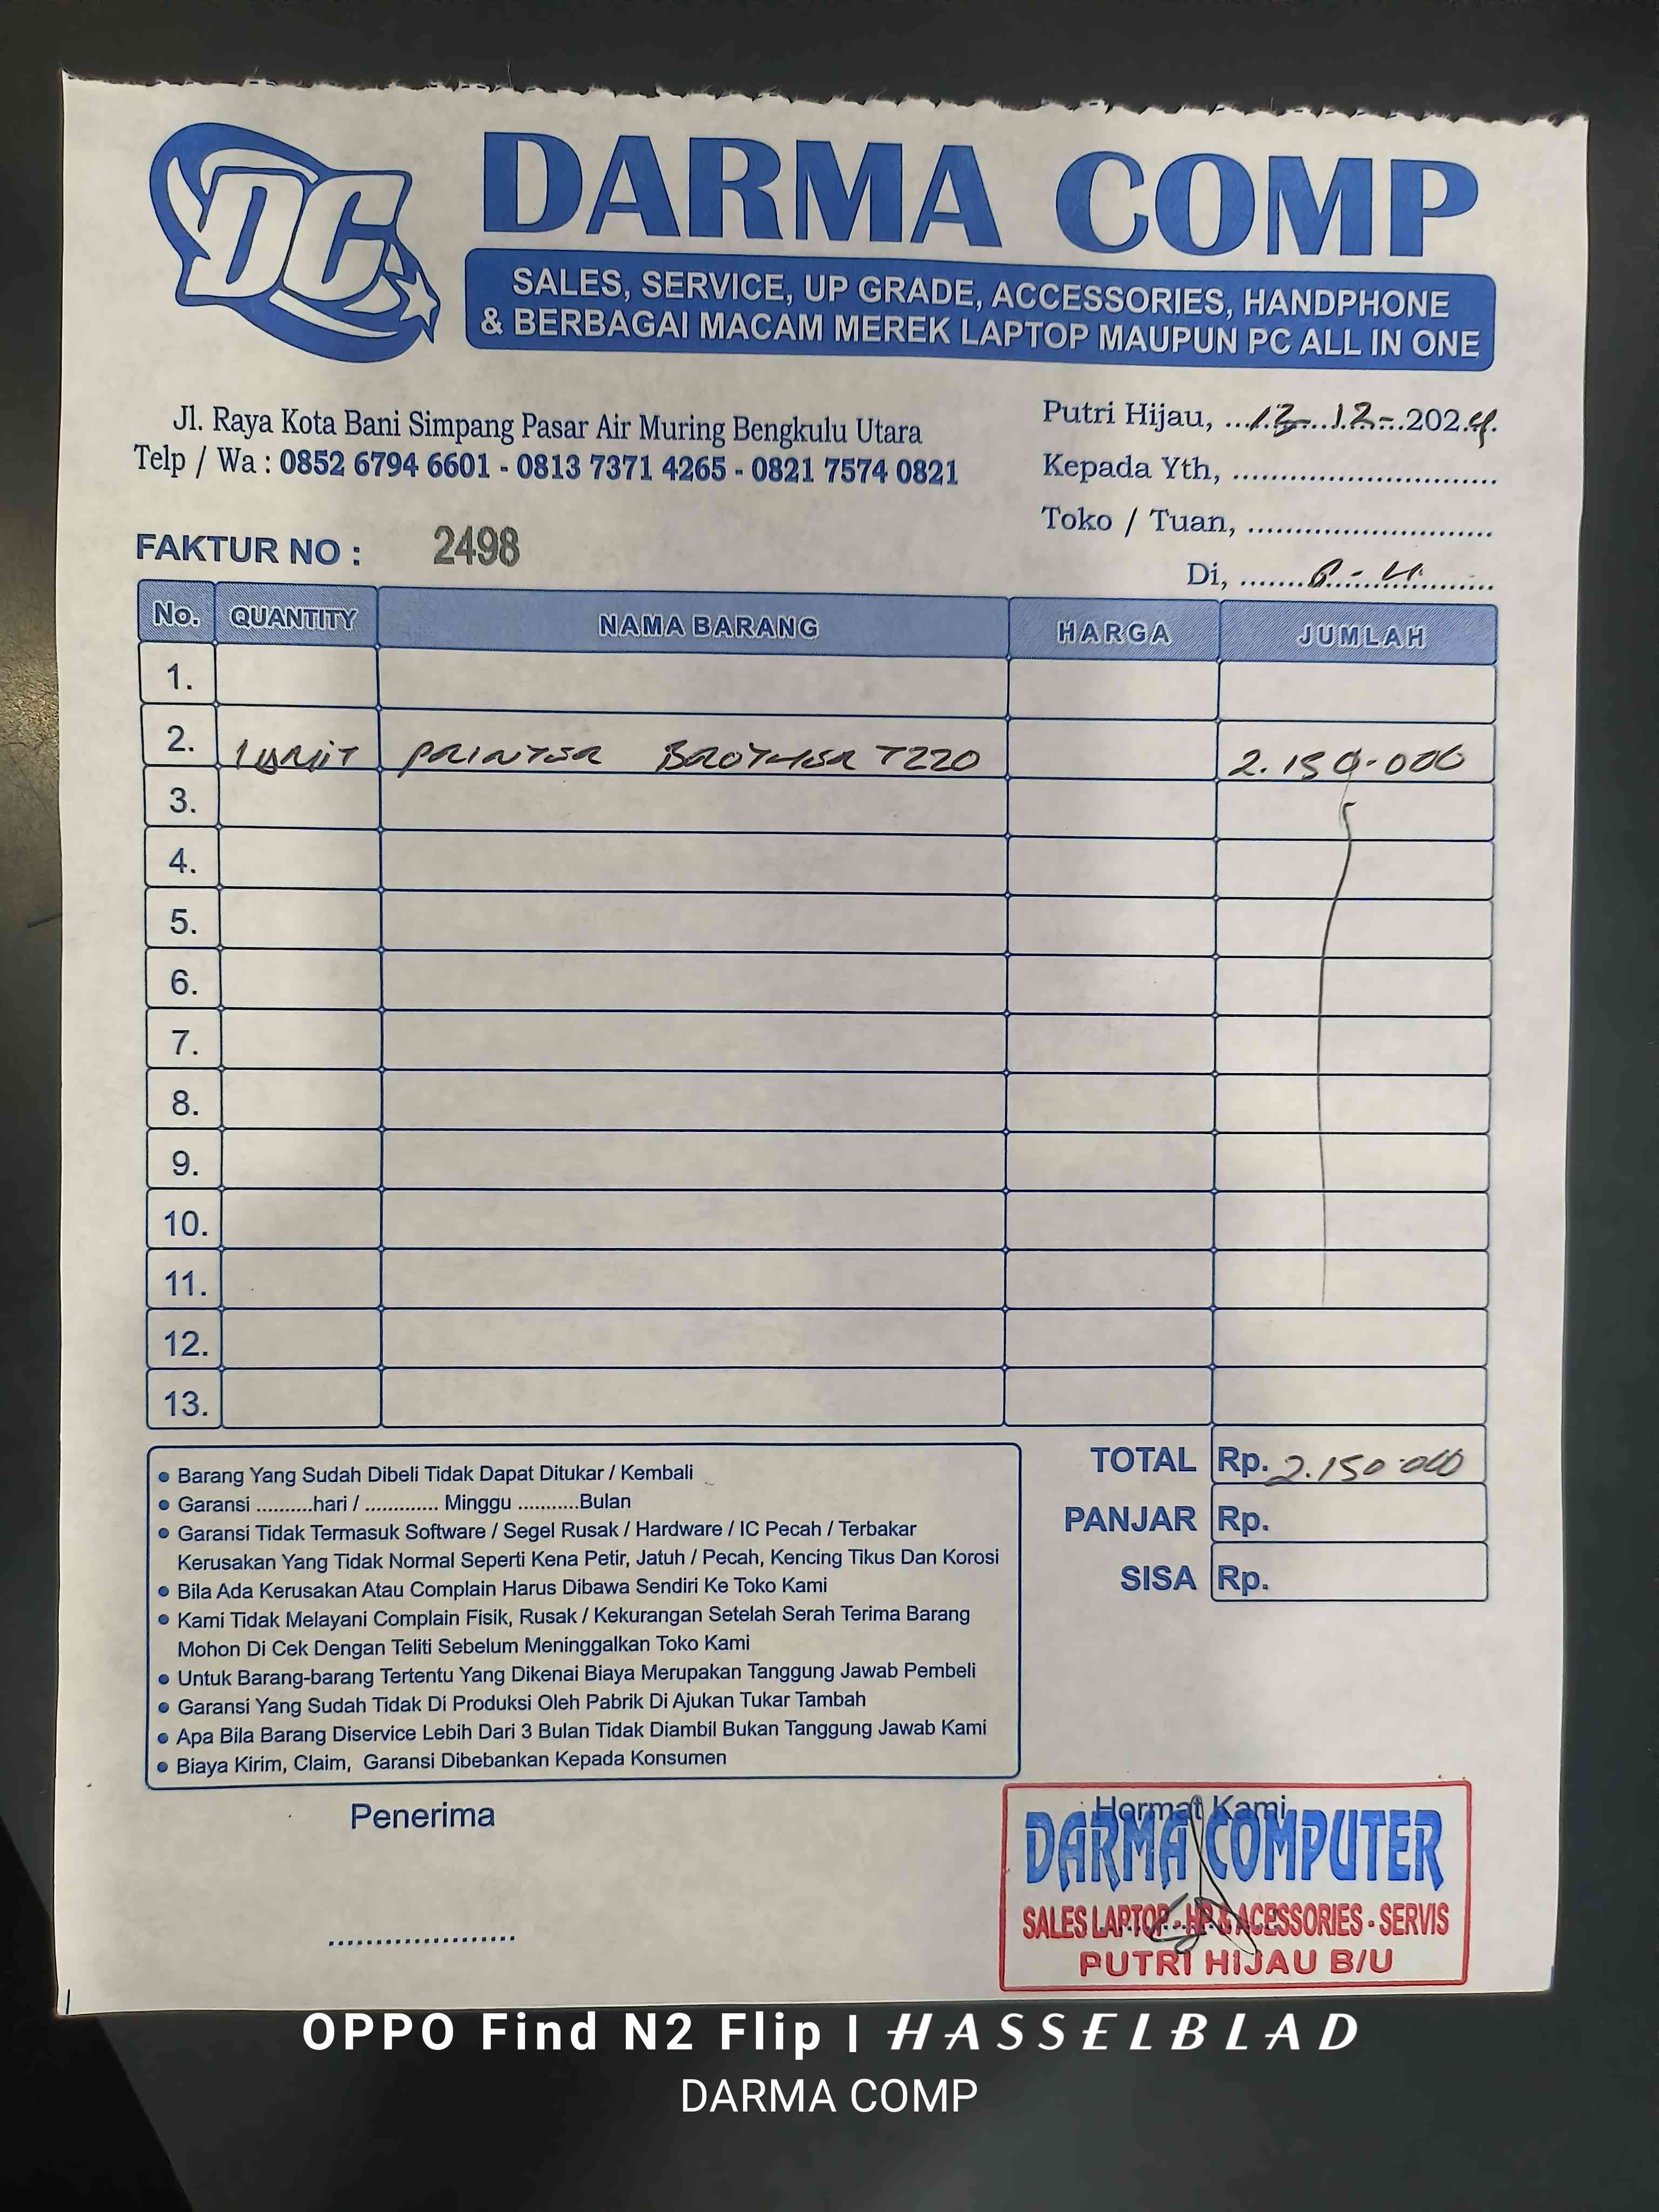 DC
DARMA COMP
SALES, SERVICE, UP GRADE, ACCESSORIES, HANDPHONE
& BERBAGAI MACAM MEREK LAPTOP MAUPUN PC ALL IN ONE
Jl. Raya Kota Bani Simpang Pasar Air Muring Bengkulu Utara
Telp / Wa : 0852 6794 6601 - 0813 7371 4265 - 0821 7574 0821
Putri Hijau, ...13-..12-..2024.
Kepada Yth, ............................
Toko / Tuan, ..........................
FAKTUR NO : 2498
Di, ..........................
No. QUANTITY NAMA BARANG HARGA JUMLAH
1.
2. 1 UNIT PRINTER BROTHER T220 2.150.000
3.
4.
5.
6.
7.
8.
9.
10.
11.
12.
13.
TOTAL Rp. 2.150.000
PANJAR Rp.
SISA Rp.
• Barang Yang Sudah Dibeli Tidak Dapat Ditukar / Kembali
• Garansi ..........hari / ............. Minggu ...........Bulan
• Garansi Tidak Termasuk Software / Segel Rusak / Hardware / IC Pecah / Terbakar
Kerusakan Yang Tidak Normal Seperti Kena Petir, Jatuh / Pecah, Kencing Tikus Dan Korosi
• Bila Ada Kerusakan Atau Complain Harus Dibawa Sendiri Ke Toko Kami
• Kami Tidak Melayani Complain Fisik, Rusak / Kekurangan Setelah Serah Terima Barang
Mohon Di Cek Dengan Teliti Sebelum Meninggalkan Toko Kami
• Untuk Barang-barang Tertentu Yang Dikenai Biaya Merupakan Tanggung Jawab Pembeli
• Garansi Yang Sudah Tidak Di Produksi Oleh Pabrik Di Ajukan Tukar Tambah
• Apa Bila Barang Diservice Lebih Dari 3 Bulan Tidak Diambil Bukan Tanggung Jawab Kami
• Biaya Kirim, Claim, Garansi Dibebankan Kepada Konsumen
Penerima
....................
Hormat Kami
DARMA COMPUTER
SALES LAPTOP - HP & ACESSORIES - SERVIS
PUTRI HIJAU B/U
OPPO Find N2 Flip | HASSELBLAD
DARMA COMP